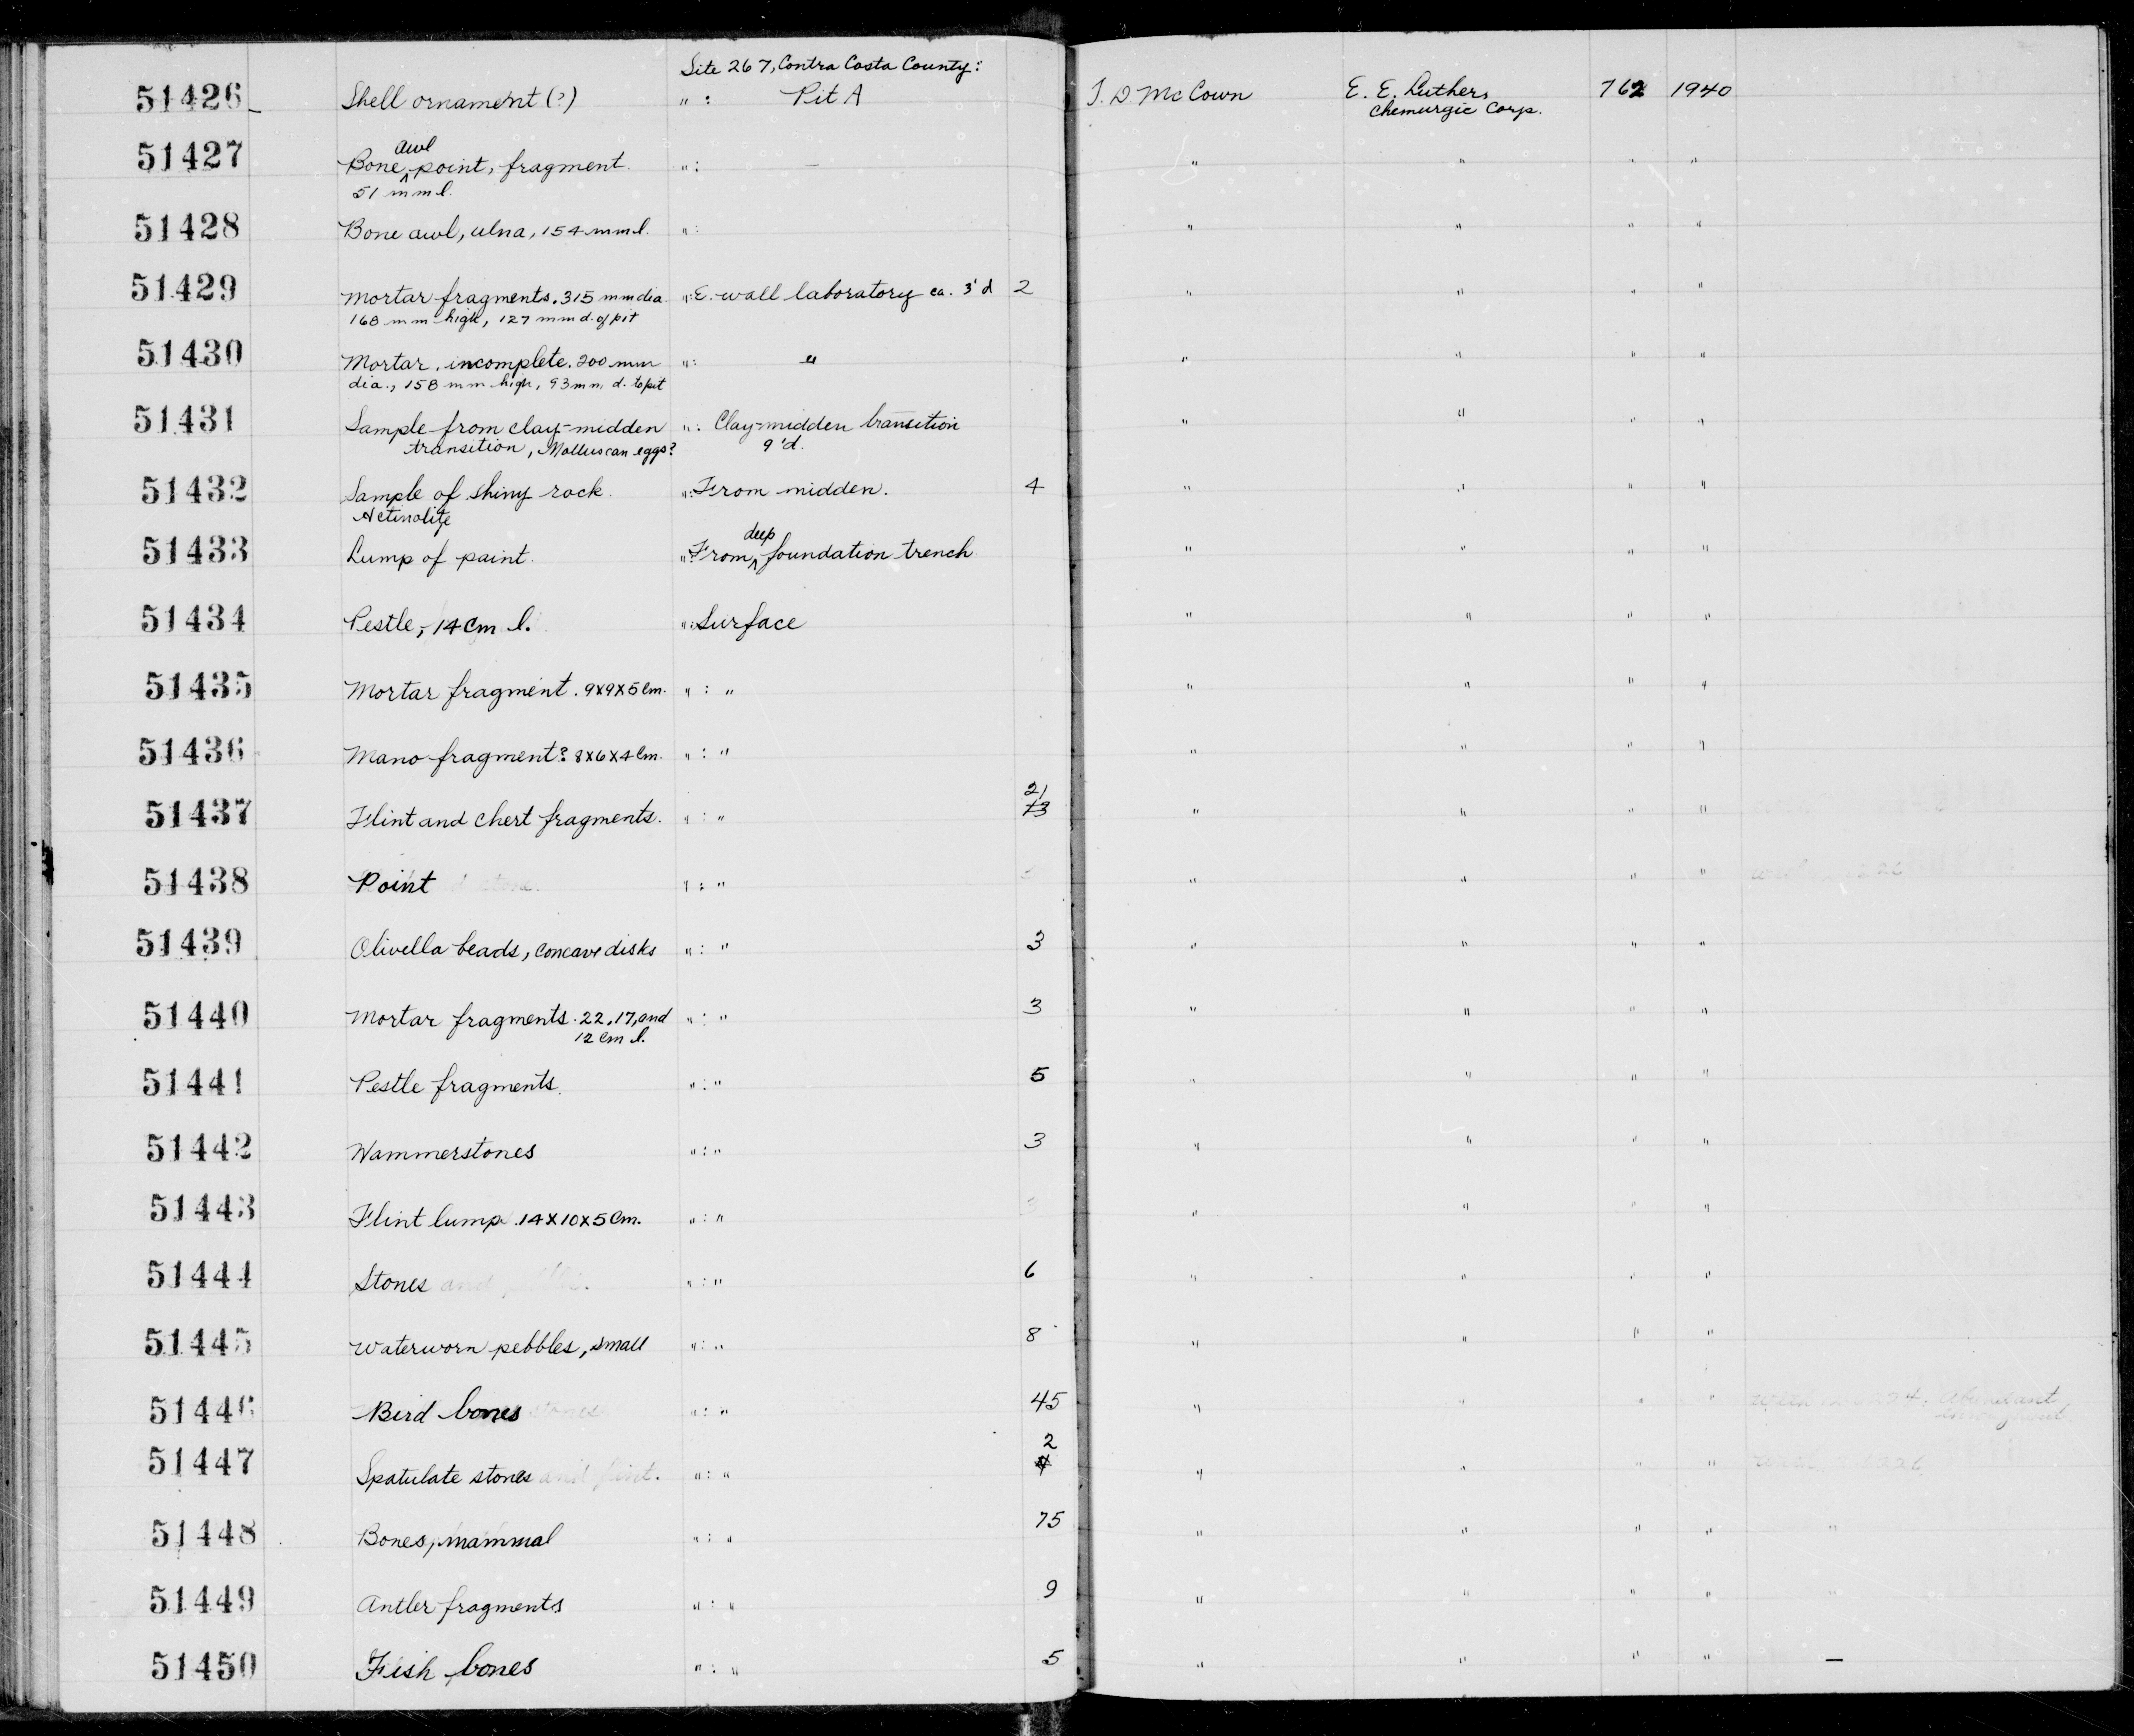 Site 267, Contra Costa County:
51426 Shell ornament (?) " : Pit A T. D McCown E. E. Luthers 762 1940
Chemurgic Corp.
awl
51427 Bone ^ point, fragment. " : — " " " "
51 mm l.
51428 Bone awl, ulna, 154 mm l. " : " " " "
51429 Mortar fragments. 315 mm dia " : E. wall laboratory ca. 3' d 2 " " " "
168 mm high, 127 mm d. of pit
51430 Mortar, incomplete. 200 mm " : " " " " "
dia., 158 mm high, 93 mm d. to pit
51431 Sample from clay-midden " : Clay-midden transition " " " "
transition, Molluscan eggs? 9' d.
51432 Sample of shiny rock. " : From midden. 4 " " " "
Actinolite
deep
51433 Lump of paint. " : From ^ foundation trench " " " "
51434 Pestle, 14 cm l. " : Surface " " " "
51435 Mortar fragment. 9x9x5 cm. " : " " " " "
51436 Mano fragment? 8x6x4 cm. " : " " " " "
21
51437 Flint and chert fragments. " : " 73 " " " "
51438 Point " : " " " " "
51439 Olivella beads, concave disks " : " 3 " " " "
51440 Mortar fragments. 22, 17, and " : " 3 " " " "
12 cm l.
51441 Pestle fragments. " : " 5 " " " "
51442 Hammerstones " : " 3 " " " "
51443 Flint lump. 14x10x5 cm. " : " " " " "
51444 Stones and " : " 6 " " " "
51445 Waterworn pebbles, small " : " 8 " " " "
51446 Bird bones " : " 45 " " " "
2
51447 Spatulate stones and flint. " : " " " " "
51448 Bones, mammal " : " 75 " " " " "
51449 Antler fragments " : " 9 " " " " "
51450 Fish bones " : " 5 " " " " —